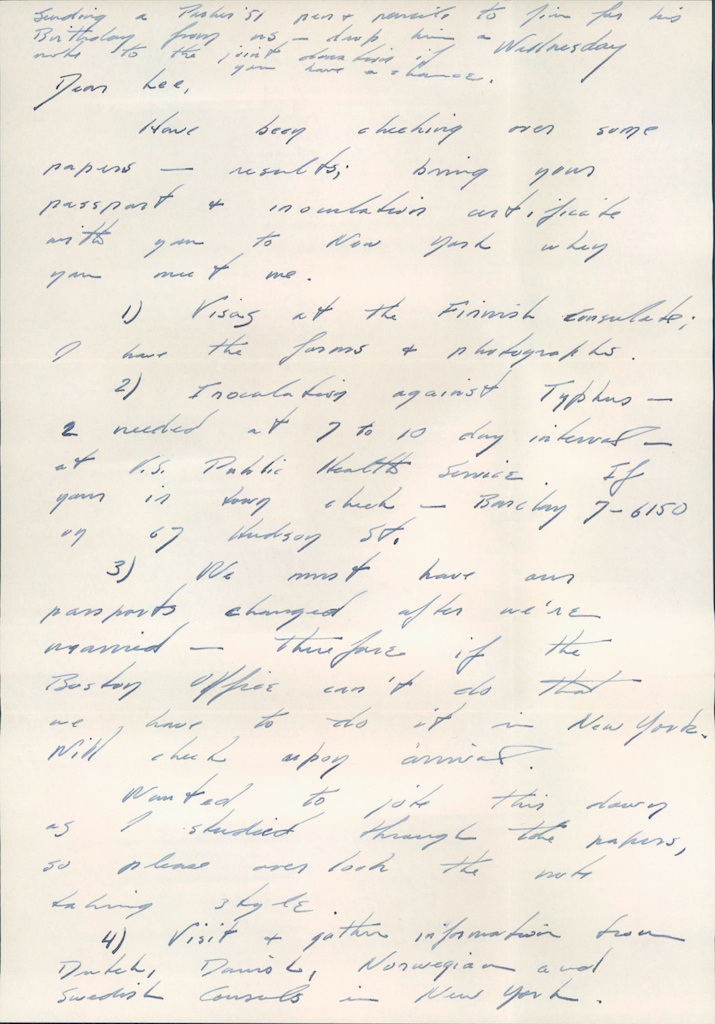 Sending a Parker '51 pen & pencils to Jim for his
Birthday from us – drop him a
Wednesday
note to the joint donation if
you have a chance.
Dear Lee,
Have been checking over some
papers — results; bring your
passport & inoculation certificate
with you to New York when
you meet me.
1) Visas at the Finnish Consulate;
I have the forms & photographs.
2) Inoculation against Typhus —
2 needed at 7 to 10 day interval —
at U.S. Public Health Service. If
your in town check — Barclay 7-6150
on 67 Hudson St.
3) We must have our
passports changed after we're
married — therefore if the
Boston Office can't do that
we have to do it in New York.
Will check upon arrival.
Wanted to jote this down
as I studied through the papers,
so please over look the note
taking style.
4) Visit & gather information from
Dutch, Danish, Norwegian and
Swedish Consuls in New York.